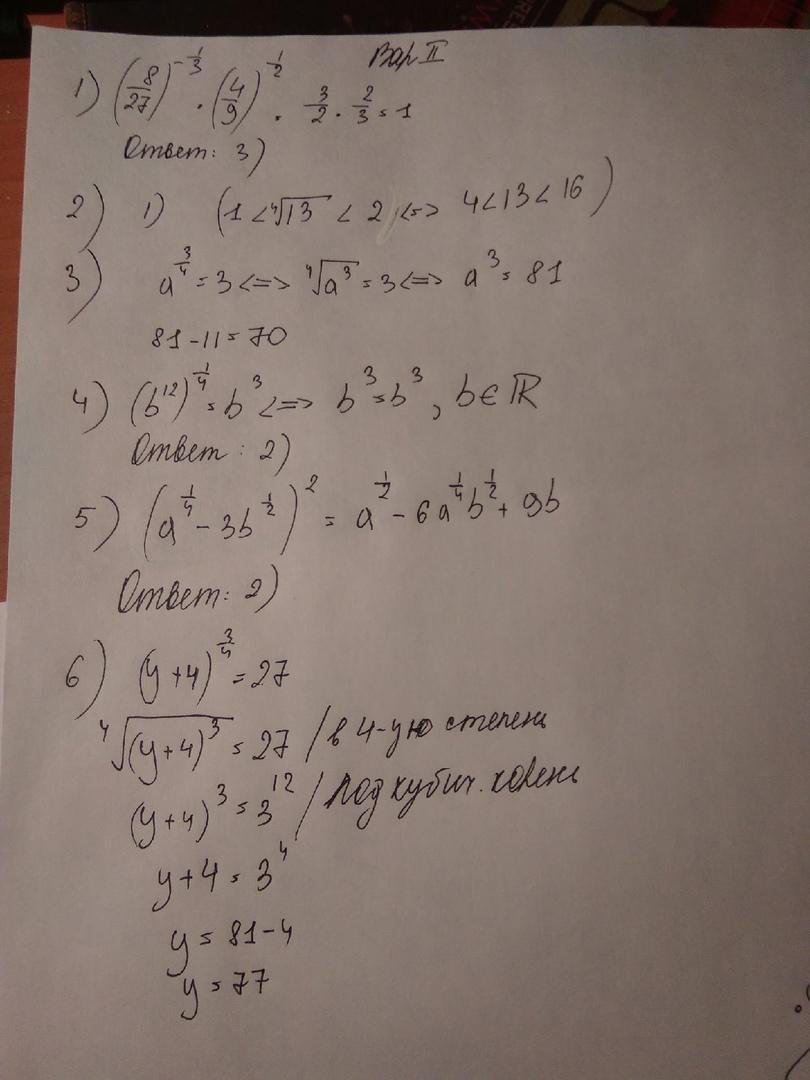 Вар II
1) (8/27)^(-1/3) · (4/9)^(1/2) · 3/2 · 2/3 = 1
Ответ: 3)
2) 1) (1 < ⁴√13 < 2 <=> 4 < 13 < 16)
3) a^(3/4) = 3 <=> ⁴√a³ = 3 <=> a³ = 81
81 - 11 = 70
4) (b¹²)^(1/4) = b³ <=> b³ = b³, b ∈ ℝ
Ответ: 2)
5) (a^(1/4) - 3b^(1/2))² = a^(1/2) - 6a^(1/4)b^(1/2) + 9b
Ответ: 2)
6) (y+4)^(3/4) = 27
⁴√(y+4)³ = 27 / в 4-ую степень
(y+4)³ = 3¹² / под кубич. корень
y+4 = 3⁴
y = 81-4
y = 77